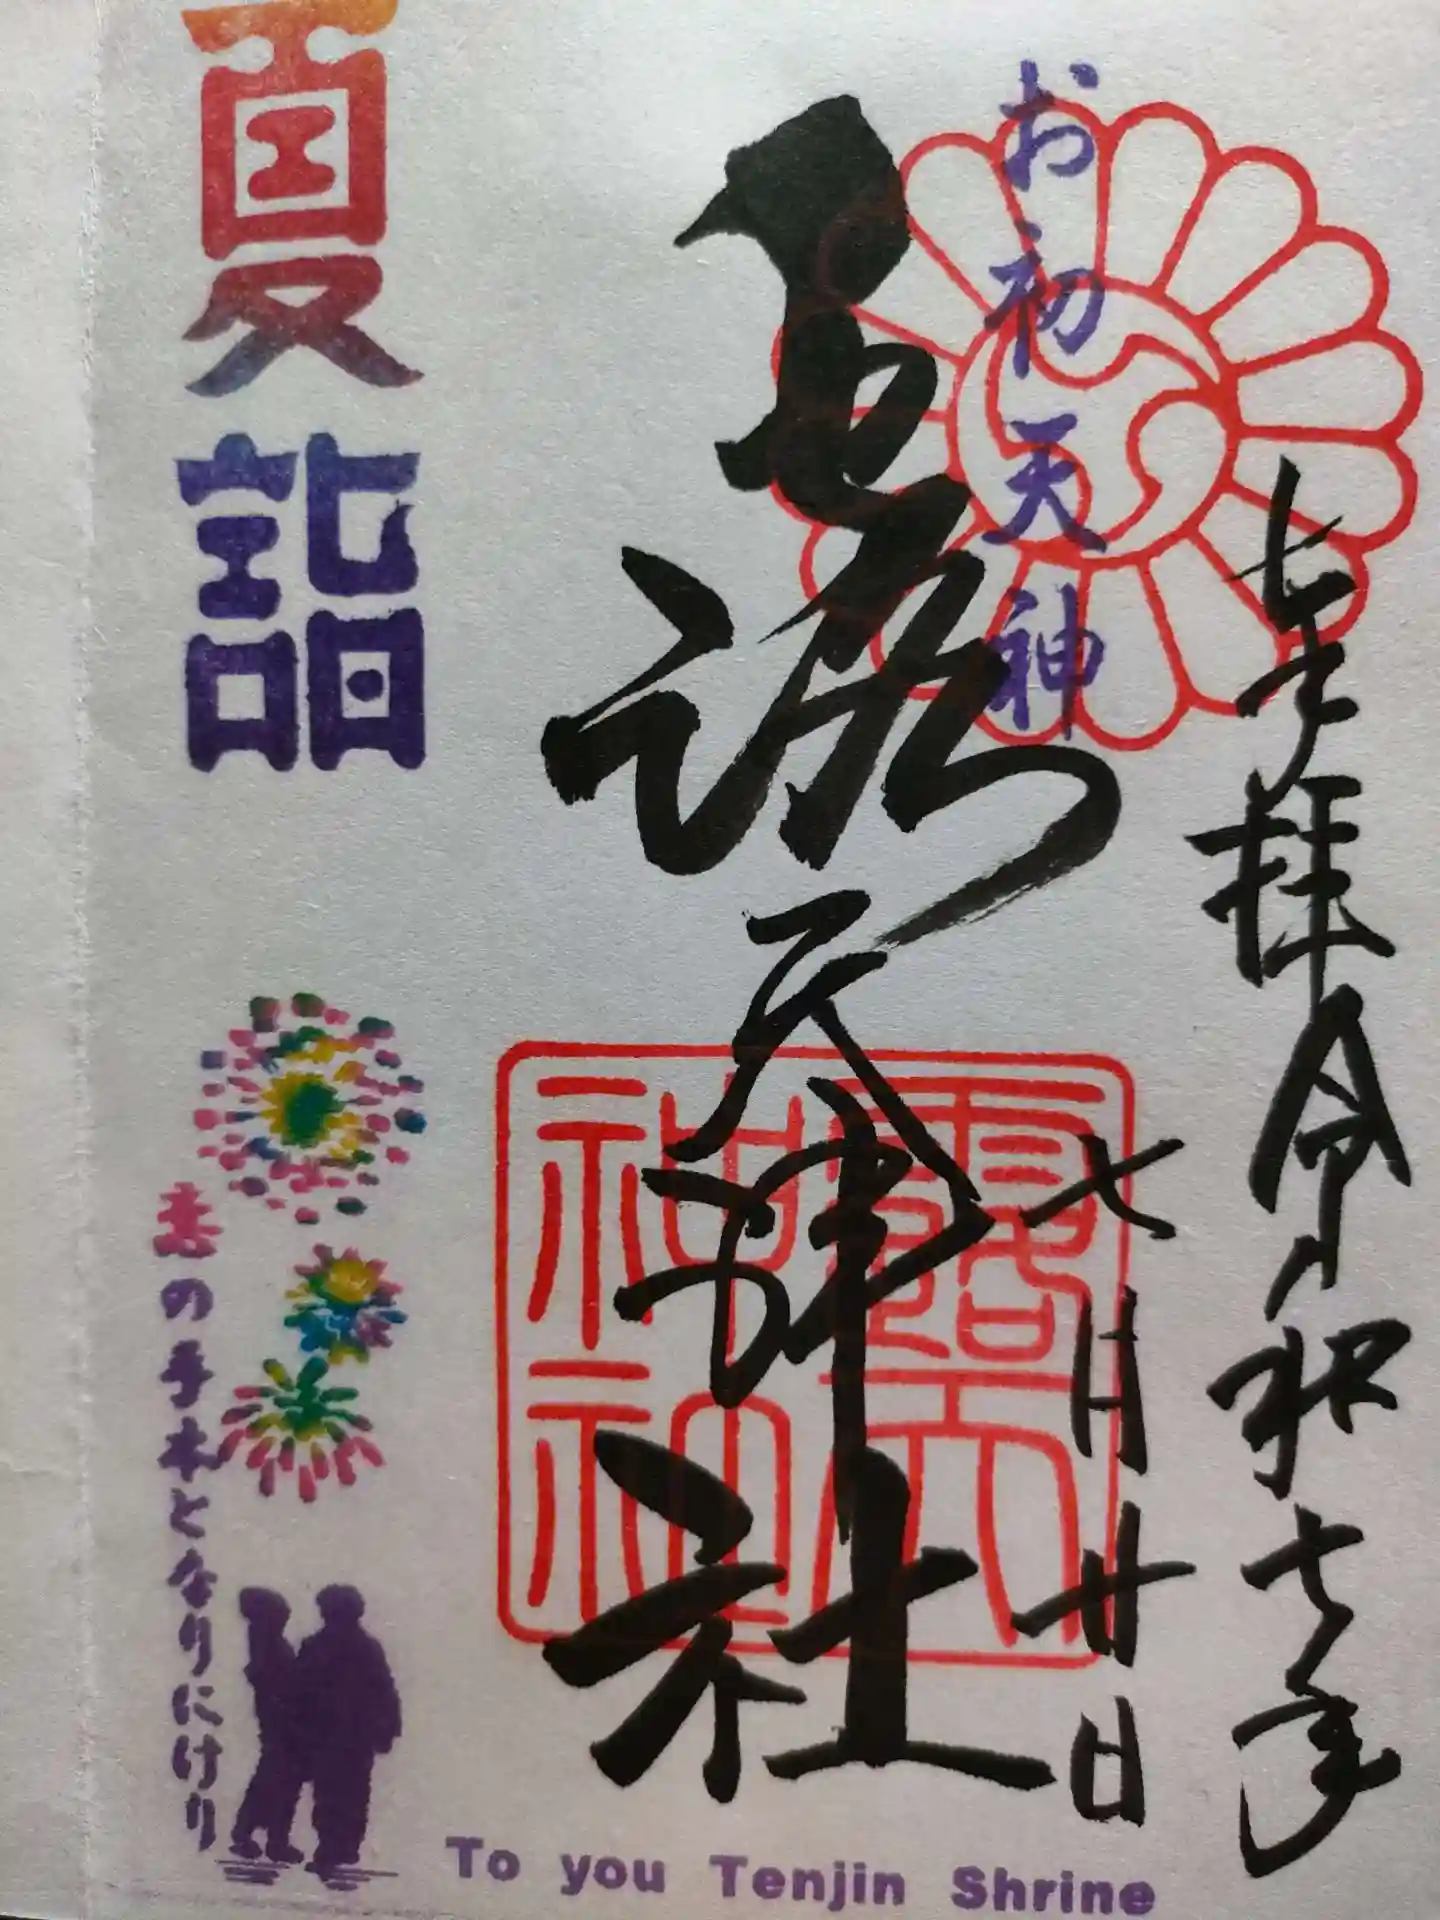 奉拝 令和七年
七月廿日
お初天神
露天神社
露天
神社
夏詣
恋の手本となりにけり
To you Tenjin Shrine